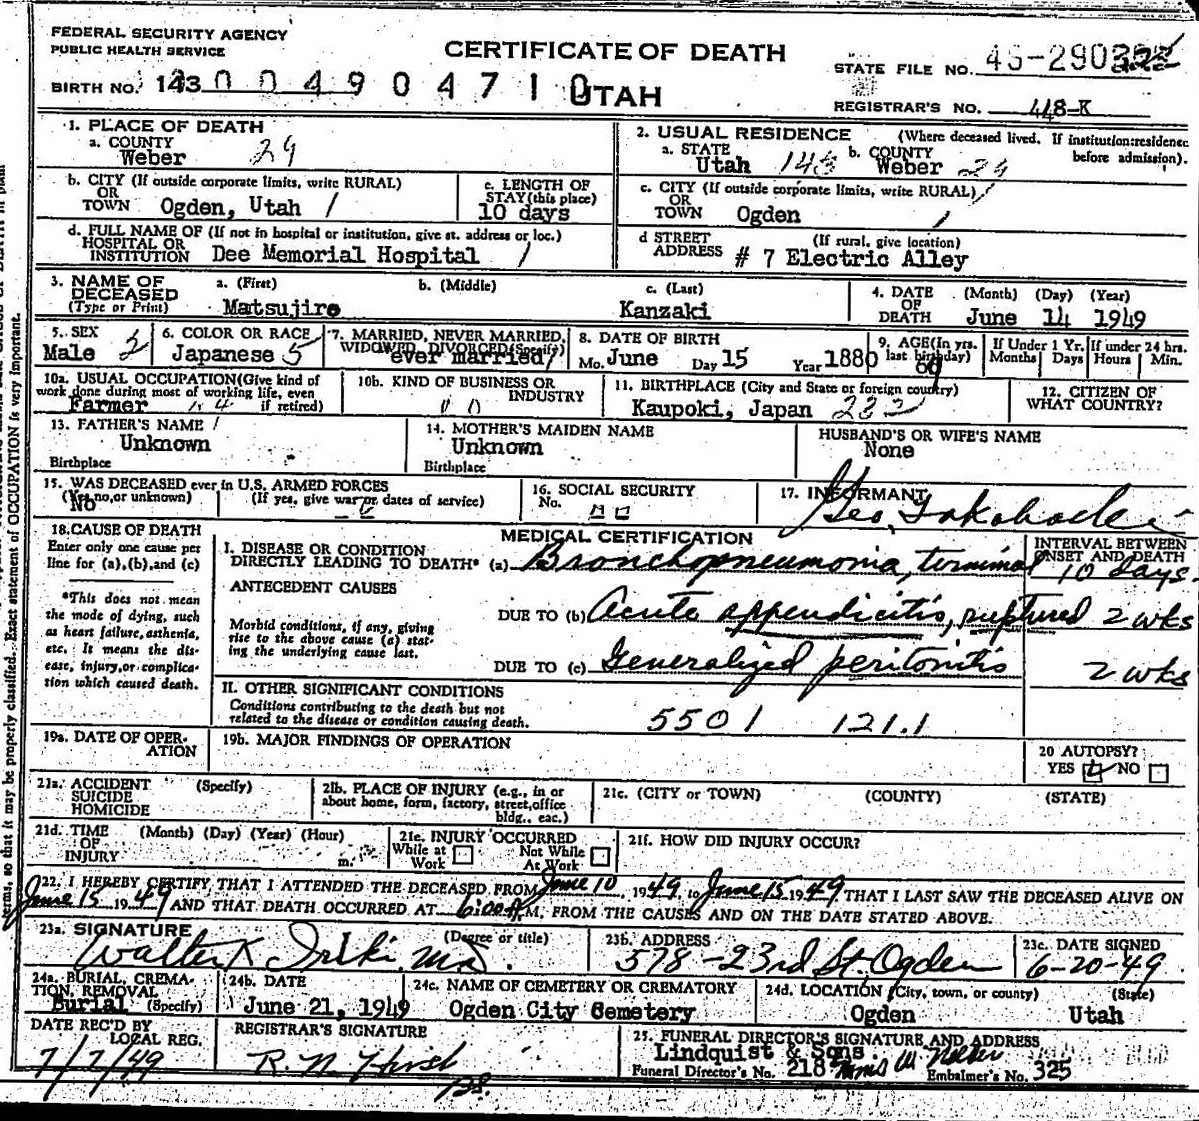 FEDERAL SECURITY AGENCY
PUBLIC HEALTH SERVICE
CERTIFICATE OF DEATH
STATE FILE NO.
BIRTH NO. 143 0 0 4 9 0 4 7 1 0
UTAH
REGISTRAR'S NO. 448-K
1. PLACE OF DEATH
a. COUNTY
Weber 29
2. USUAL RESIDENCE (Where deceased lived. If institution:residence before admission).
a. STATE Utah 143 b. COUNTY Weber 29
b. CITY (If outside corporate limits, write RURAL)
OR
TOWN Ogden, Utah /
c. LENGTH OF
STAY (this place)
10 days
c. CITY (If outside corporate limits, write RURAL)
OR
TOWN Ogden /
d. FULL NAME OF (If not in hospital or institution, give st. address or loc.)
HOSPITAL OR
INSTITUTION Dee Memorial Hospital /
d STREET (If rural, give location)
ADDRESS # 7 Electric Alley
3. NAME OF
DECEASED
(Type or Print)
a. (First) b. (Middle) c. (Last)
Matsujiro Kanzaki
4. DATE (Month) (Day) (Year)
OF
DEATH June 14 1949
5. SEX
Male 2
6. COLOR OR RACE
Japanese 5
7. MARRIED, NEVER MARRIED,
WIDOWED, DIVORCED (Specify)
ever married
8. DATE OF BIRTH
Mo. June Day 15 Year 1880
9. AGE (In yrs.
last birthday)
69
If Under 1 Yr.
Months Days
If under 24 hrs.
Hours Min.
10a. USUAL OCCUPATION (Give kind of
work done during most of working life, even
Farmer if retired)
10b. KIND OF BUSINESS OR
INDUSTRY
11. BIRTHPLACE (City and State or foreign country)
Kaupoki, Japan 232
12. CITIZEN OF
WHAT COUNTRY?
13. FATHER'S NAME
Unknown
Birthplace
14. MOTHER'S MAIDEN NAME
Unknown
Birthplace
HUSBAND'S OR WIFE'S NAME
None
15. WAS DECEASED ever in U.S. ARMED FORCES
(Yes no, or unknown) (If yes, give war or dates of service)
No
16. SOCIAL SECURITY
No.
17. INFORMANT
Geo.
18. CAUSE OF DEATH
Enter only one cause per
line for (a), (b), and (c)
*This does not mean
the mode of dying, such
as heart failure, asthenia,
etc. It means the dis-
ease, injury, or complica-
tion which caused death.
MEDICAL CERTIFICATION
INTERVAL BETWEEN
ONSET AND DEATH
I. DISEASE OR CONDITION
DIRECTLY LEADING TO DEATH* (a) Bronchopneumonia, terminal 10 days.
ANTECEDENT CAUSES
Morbid conditions, if any, giving
rise to the above cause (a) stat-
ing the underlying cause last.
DUE TO (b) Acute appendicitis, ruptured 2 wks
DUE TO (c) Generalized peritonitis 2 wks
II. OTHER SIGNIFICANT CONDITIONS
Conditions contributing to the death but not
related to the disease or condition causing death.
5501 121.1
19a. DATE OF OPER-
ATION
19b. MAJOR FINDINGS OF OPERATION
20 AUTOPSY?
YES NO
21a. ACCIDENT (Specify)
SUICIDE
HOMICIDE
21b. PLACE OF INJURY (e.g., in or
about home, form, factory, street, office
bldg., eac.)
21c. (CITY or TOWN) (COUNTY) (STATE)
21d. TIME (Month) (Day) (Year) (Hour)
OF
INJURY m.
21e. INJURY OCCURRED
While at Work Not While At Work
21f. HOW DID INJURY OCCUR?
22. I HEREBY CERTIFY THAT I ATTENDED THE DECEASED FROM June 10, 1949 to June 15 1949 THAT I LAST SAW THE DECEASED ALIVE ON
June 15 1949 AND THAT DEATH OCCURRED AT 6:00 A M, FROM THE CAUSES AND ON THE DATE STATED ABOVE.
23a. SIGNATURE (Degree or title)
Walter K MD.
23b. ADDRESS
578-23rd St. Ogden
23c. DATE SIGNED
6-20-49
24a. BURIAL, CREMA-
TION, REMOVAL
Burial (Specify)
24b. DATE
June 21, 1949
24c. NAME OF CEMETERY OR CREMATORY
Ogden City Cemetery
24d. LOCATION (City, town, or county) (State)
Ogden Utah
DATE REC'D BY
LOCAL REG.
7/7/49
REGISTRAR'S SIGNATURE
R. N. Hirst
25. FUNERAL DIRECTOR'S SIGNATURE AND ADDRESS
Lindquist & Sons.
Funeral Director's No. 218 Embalmer's No. 325
terms, so that it may be properly classified. Exact statement of OCCUPATION is very important.